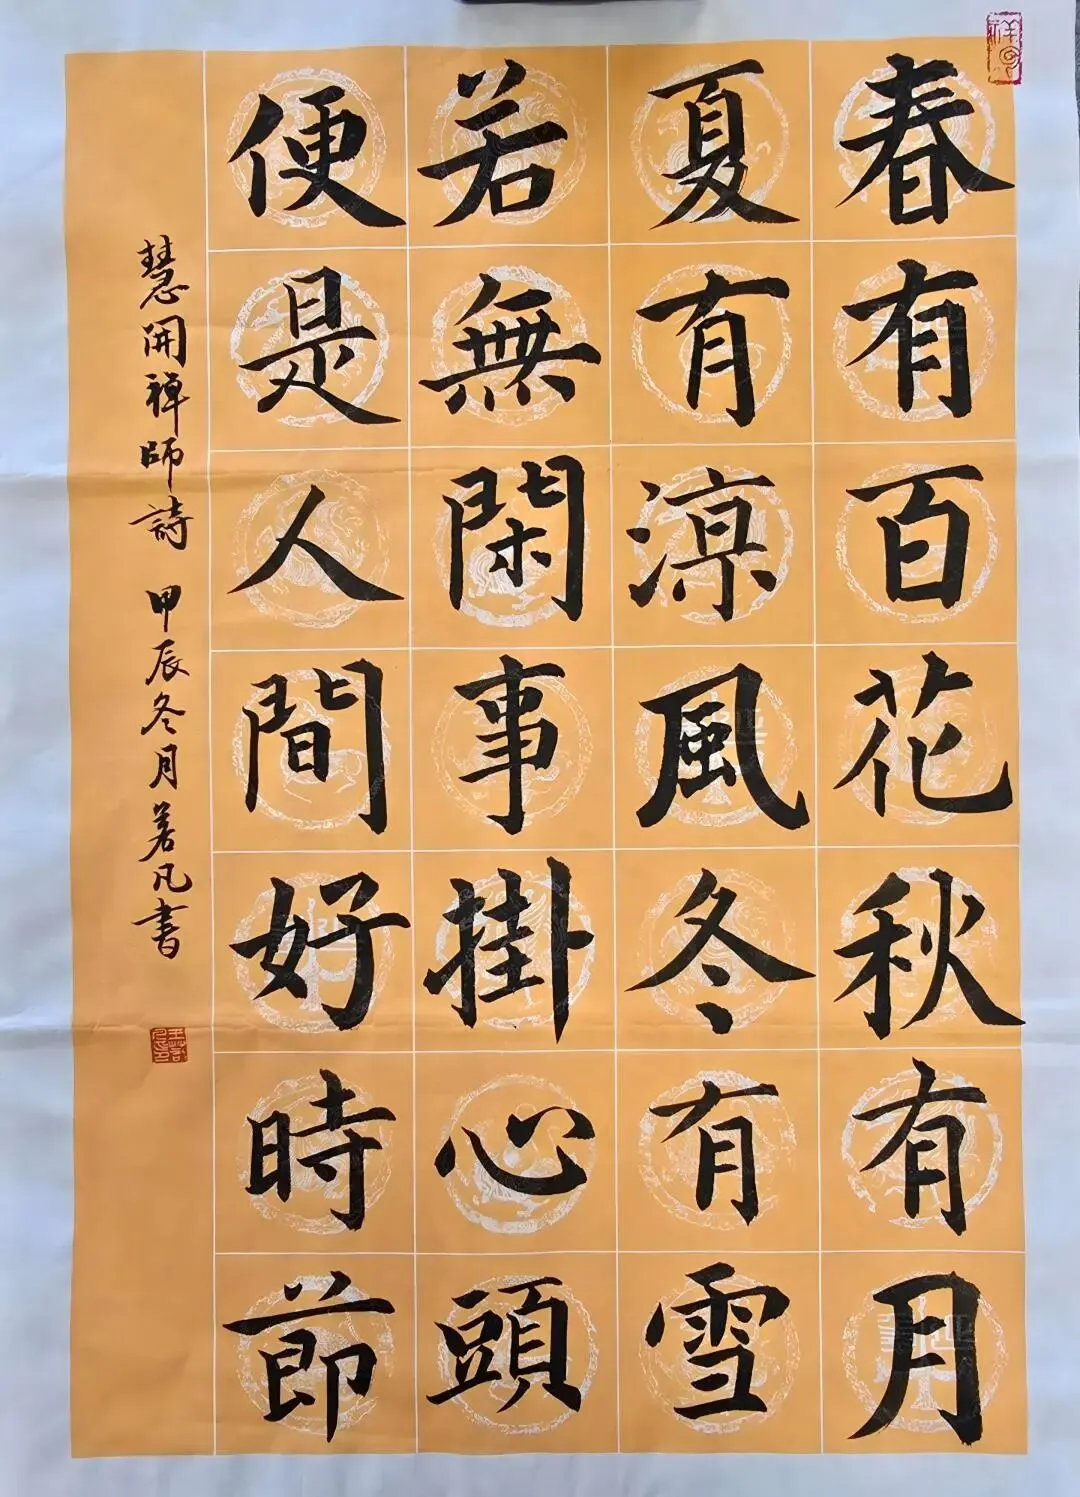 春有百花秋有月
夏有涼風冬有雪
若無閑事掛心頭
便是人間好時節
慧開禅師詩 甲辰冬月若凡書